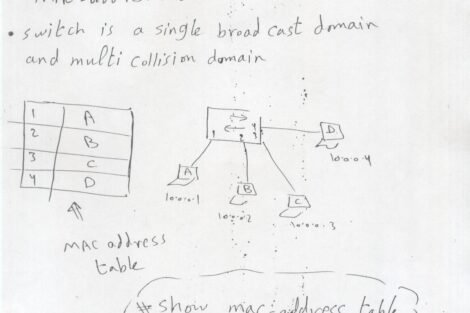 • switch is a single broad cast domain
and multi collision domain
1 A
2 B
3 C
4 D
MAC address
table
1 2 3 4
A
10.0.0.1
B
10.0.0.2
C
10.0.0.3
D
10.0.0.4
# show mac-address table